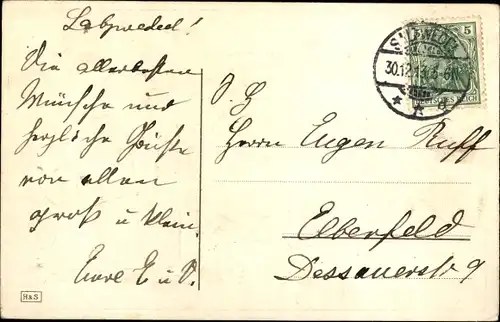 Salzwedel!
Die allerbesten
Wünsche und
herzliche Grüße
von allen
groß u klein.
SALZWEDEL
30.12.13.
5
DEUTSCHES REICH
Herrn Eugen Ruff
Elberfeld
Dessauerstr 9
R&S